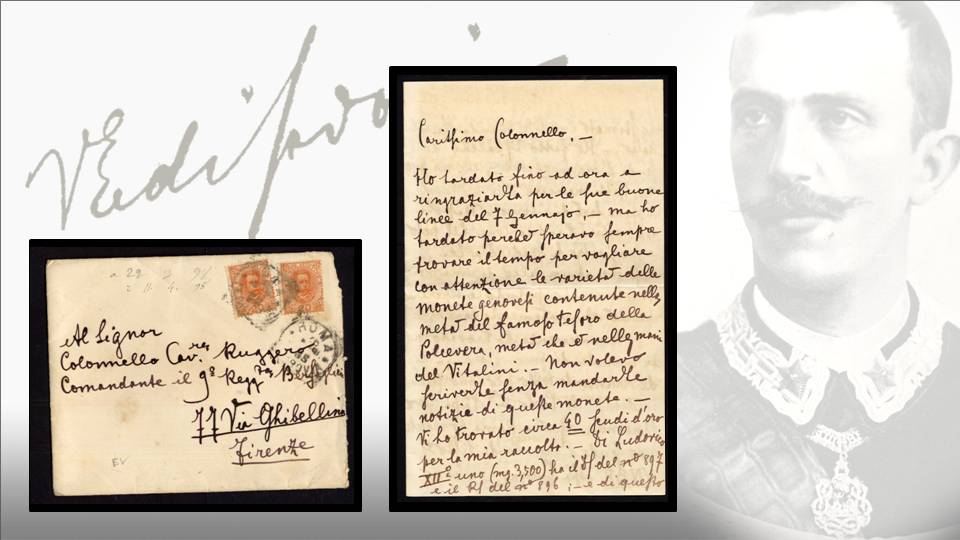 a 29
Al Signor
Colonnello Cav.re Ruggero
Comandante il 9º Regg.to
77 Via Ghibellina
Firenze
EV
ROMA
Carissimo Colonnello. —
Ho tardato fino ad ora a
ringraziarLa per le sue buone
linee del 7 Gennajo, — ma ho
tardato perchè speravo sempre
trovare il tempo per vagliare
con attenzione le varietà delle
monete genovesi contenute nella
metà del famoso tesoro della
Polcevera, metà che è nelle mani
del Vitalini. — Non volevo
scriverLe senza mandarLe
notizia di queste monete. —
Vi ho trovato circa 40 scudi d'oro
per la mia raccolta. — Di Ludovico
XIIº uno (mg. 3,500) ha il D/ del nº 897
e il R/ del nº 896 ; — e di questo